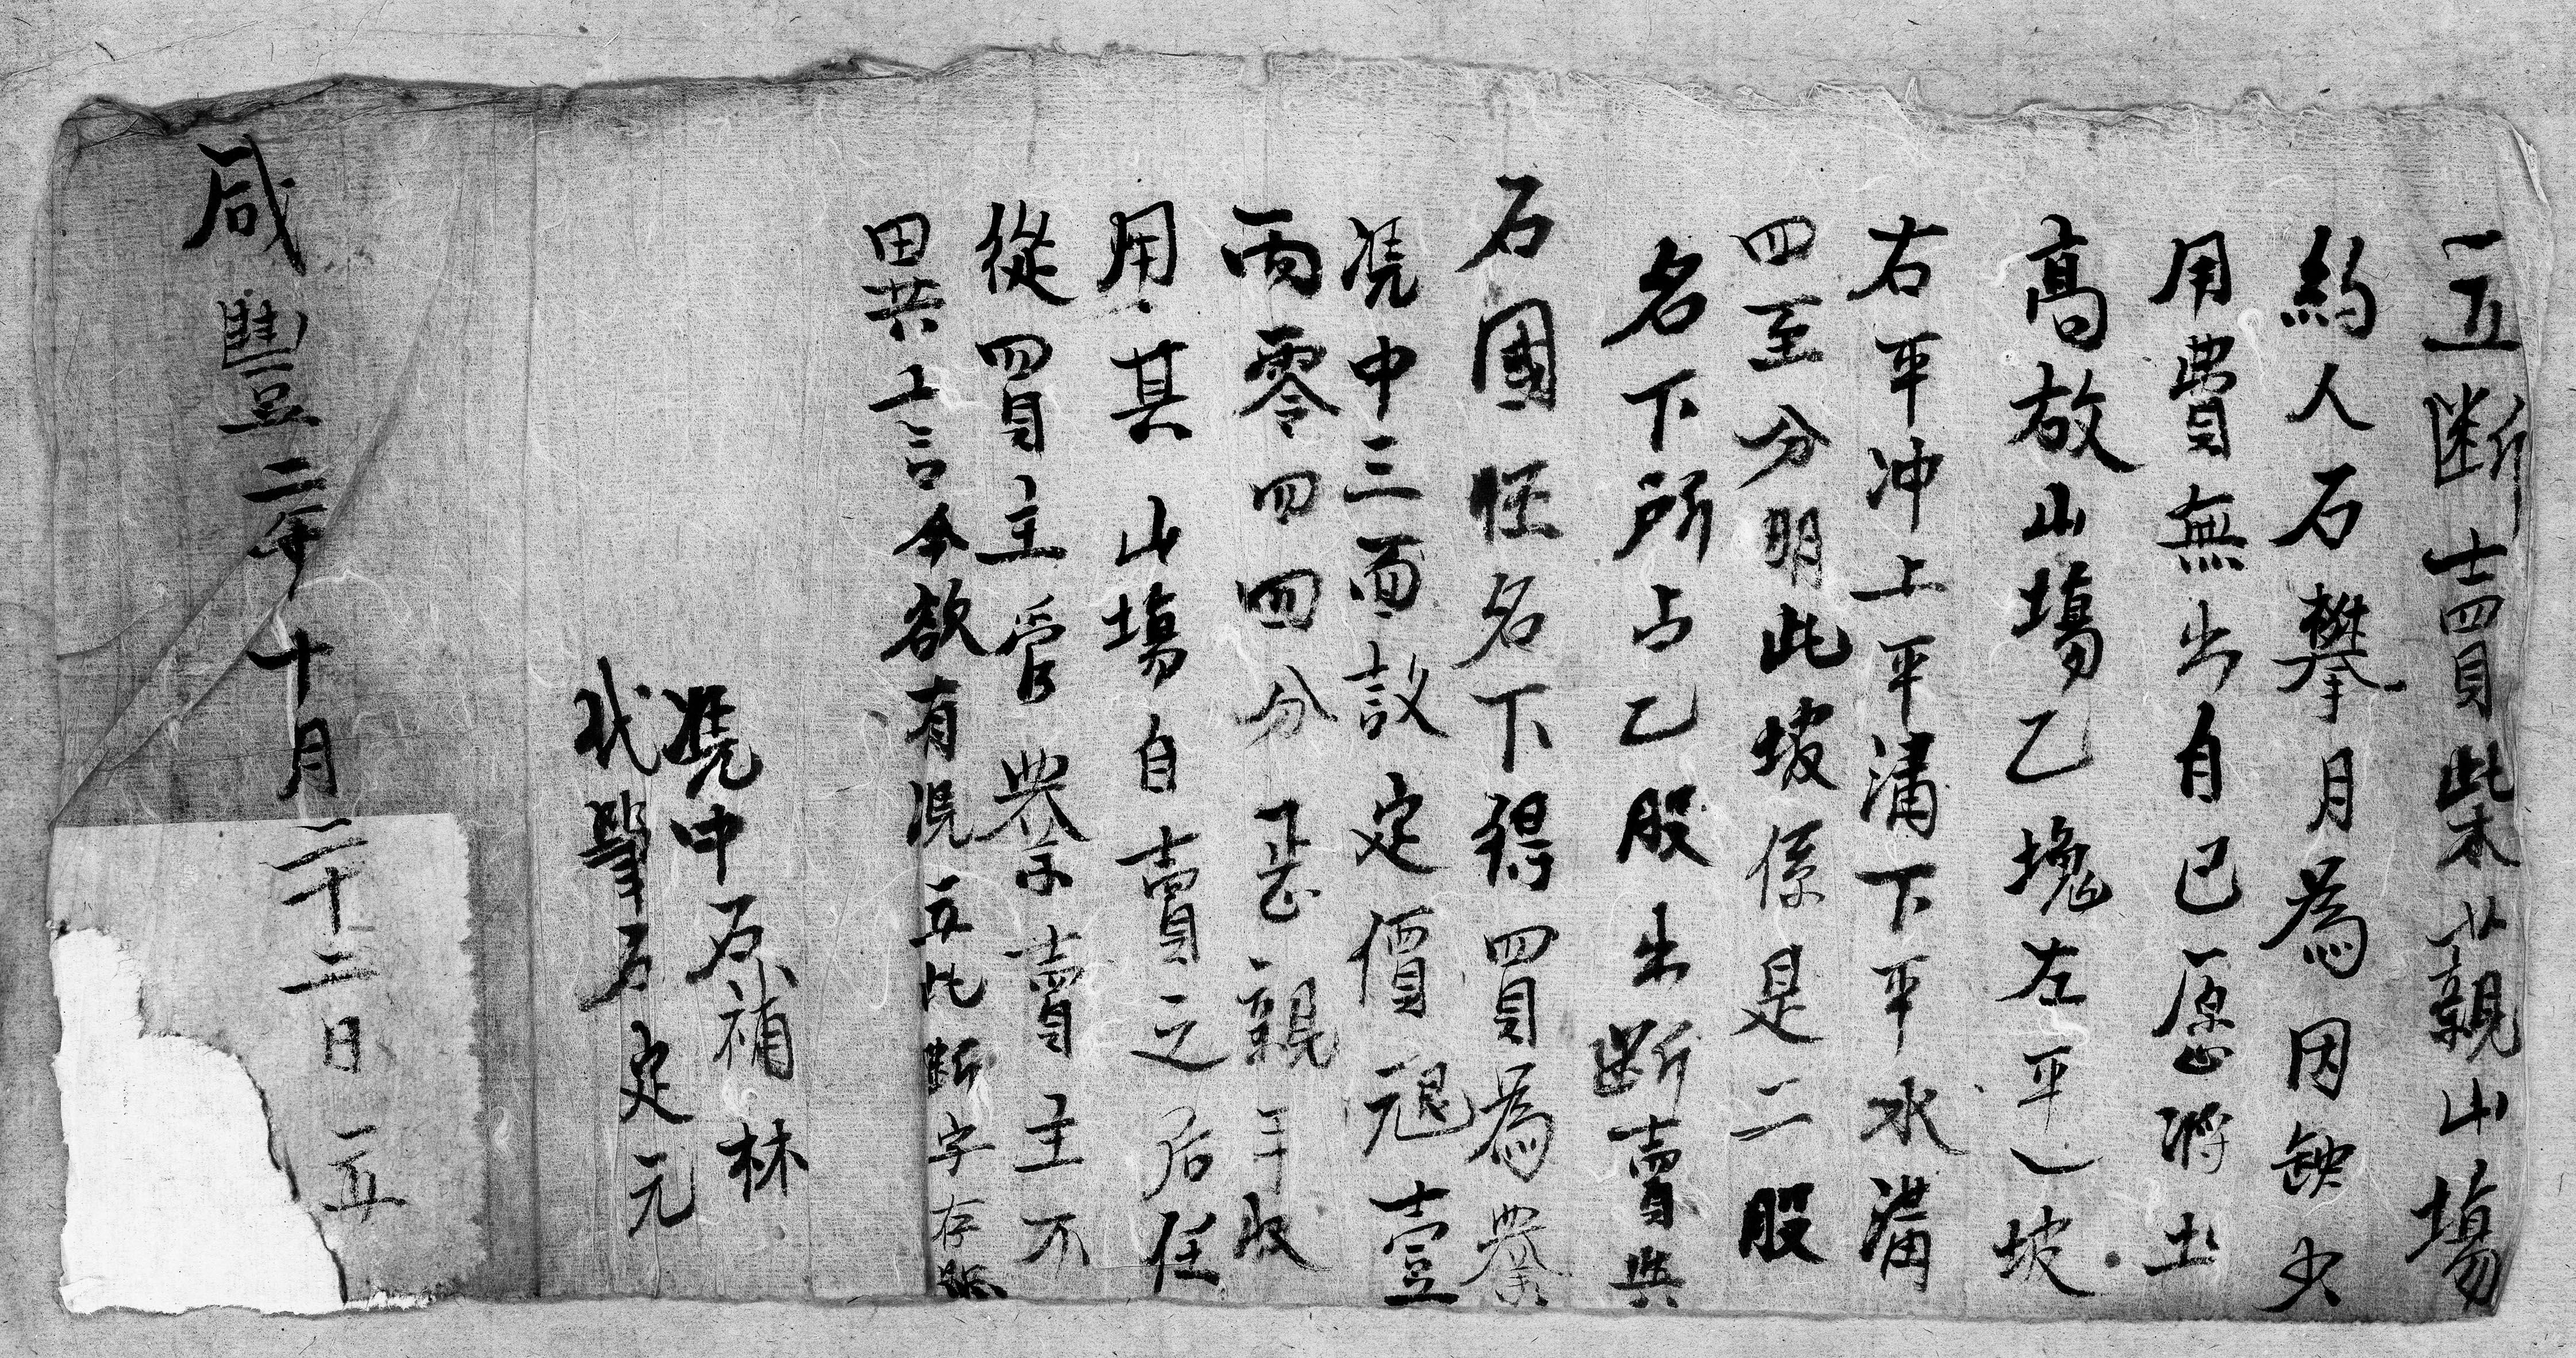 一立断賣柴薪山塲
約人石攀月為因缺少
用費無出自己愿將土
高放山塲乙塊左平乀坡
右平冲上平溝下平水溝
四至分明此坡係是二股
名下所占乙股出断賣與
石國恆名下得買為業
凭中三面議定價艮壹
両零四四分正親手收
用其山塲自賣之后任
從買主管業賣主不
異共言今欲有凭立此断字存照
凭中石補林
代筆石定元
咸豐二年十月二十二日立